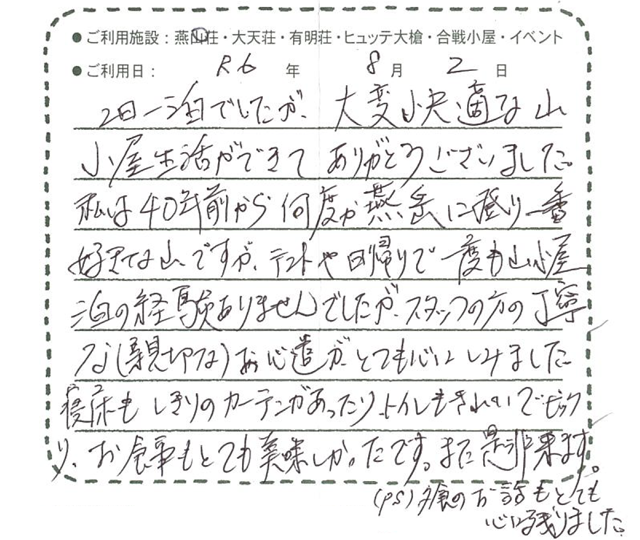 ●ご利用施設：燕山荘・大天荘・有明荘・ヒュッテ大槍・合戦小屋・イベント
●ご利用日： R6 年 8 月 2 日
2日一泊でしたが、大変快適な山
小屋生活ができて ありがとうございました
私は40年前から何度か燕岳に登り一番
好きな山ですが、テントや日帰りで一度も山小屋
泊の経験ありませんでしたが、スタッフの方の丁寧
な(親切な)お心遣がとても心にしみました
寝床もしきりのカーテンがあったりトイレもきれいでビック
リ、お食事もとても美味しかったです。また是非来ます。
(PS)夕食のお話もとても
心に残りました。